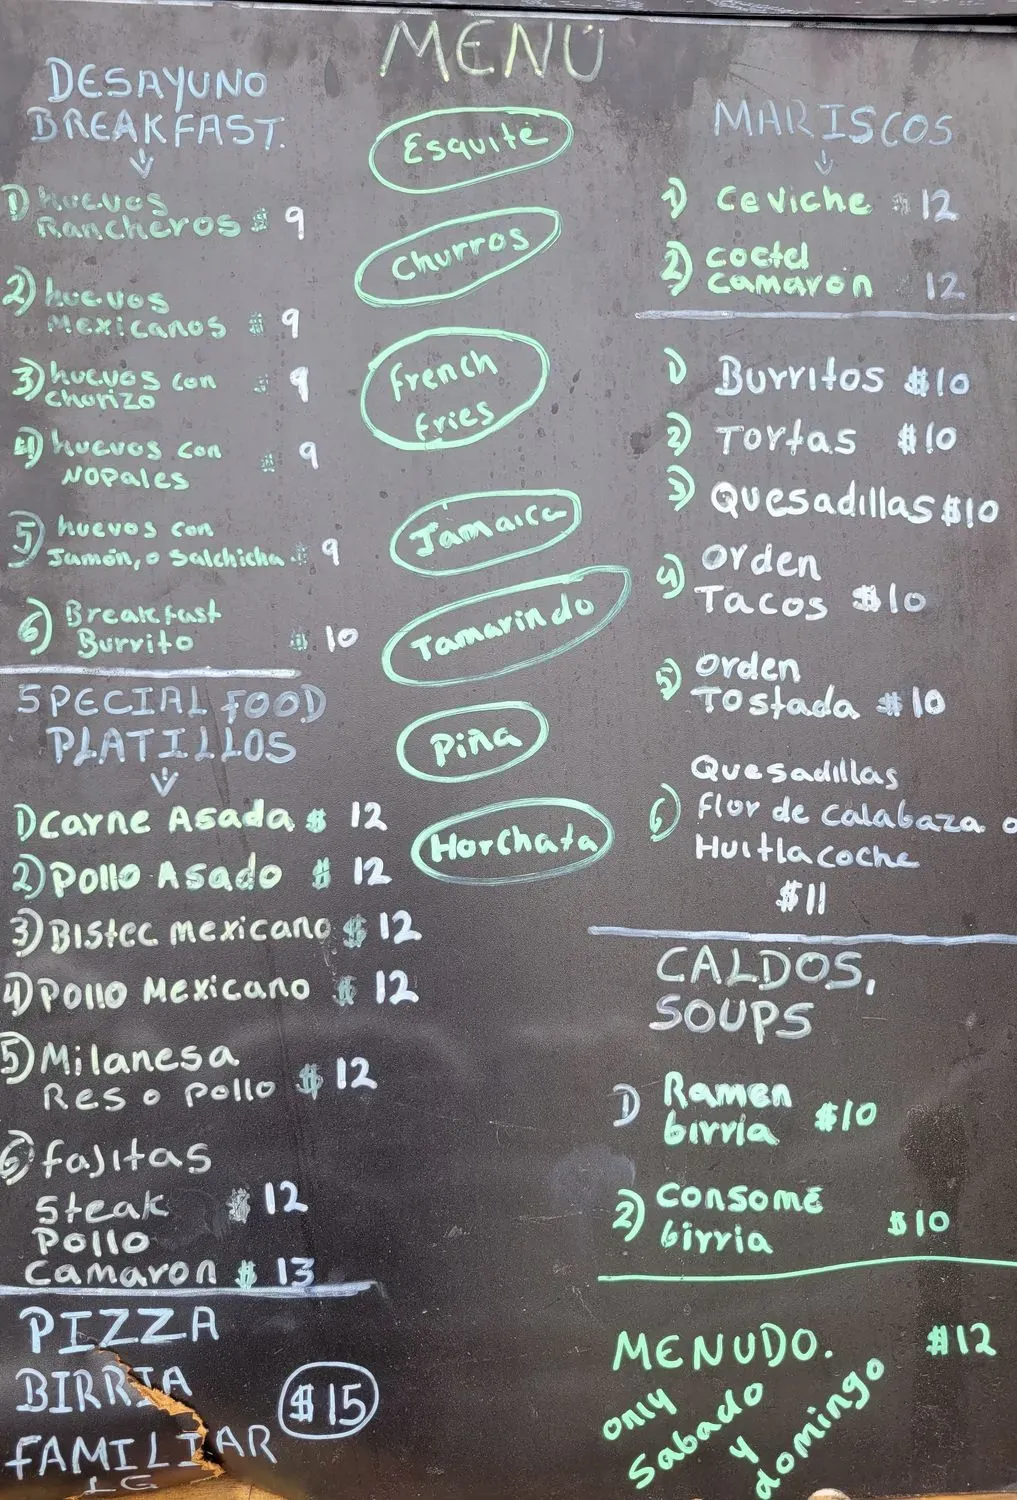 MENU
DESAYUNO
BREAKFAST.
1) huevos
Rancheros $ 9
2) huevos
Mexicanos $ 9
3) huevos con
Chorizo $ 9
4) huevos con
NOPales $ 9
5) huevos con
Jamón, o Salchicha $ 9
6) Breakfast
Burrito $ 10
SPECIAL FOOD
PLATILLOS
1) Carne Asada $ 12
2) Pollo Asado $ 12
3) Bistec mexicano $ 12
4) Pollo Mexicano $ 12
5) Milanesa
Res o pollo $ 12
6) fajitas
Steak $ 12
Pollo
Camaron $ 13
PIZZA
BIRRIA
FAMILIAR $15
LG
Esquite
Churros
french
fries
Jamaica
Tamarindo
Piña
Horchata
MARISCOS
1) Ceviche $ 12
2) coctel
camaron 12
1) Burritos $10
2) Tortas $10
3) Quesadillas $10
4) Orden
Tacos $10
5) Orden
Tostada $10
Quesadillas
6) flor de calabaza o
Huitlacoche
$11
CALDOS,
SOUPS
1) Ramen
birria $10
2) Consomé
birria $10
MENUDO. $12
only
Sabado
y
domingo